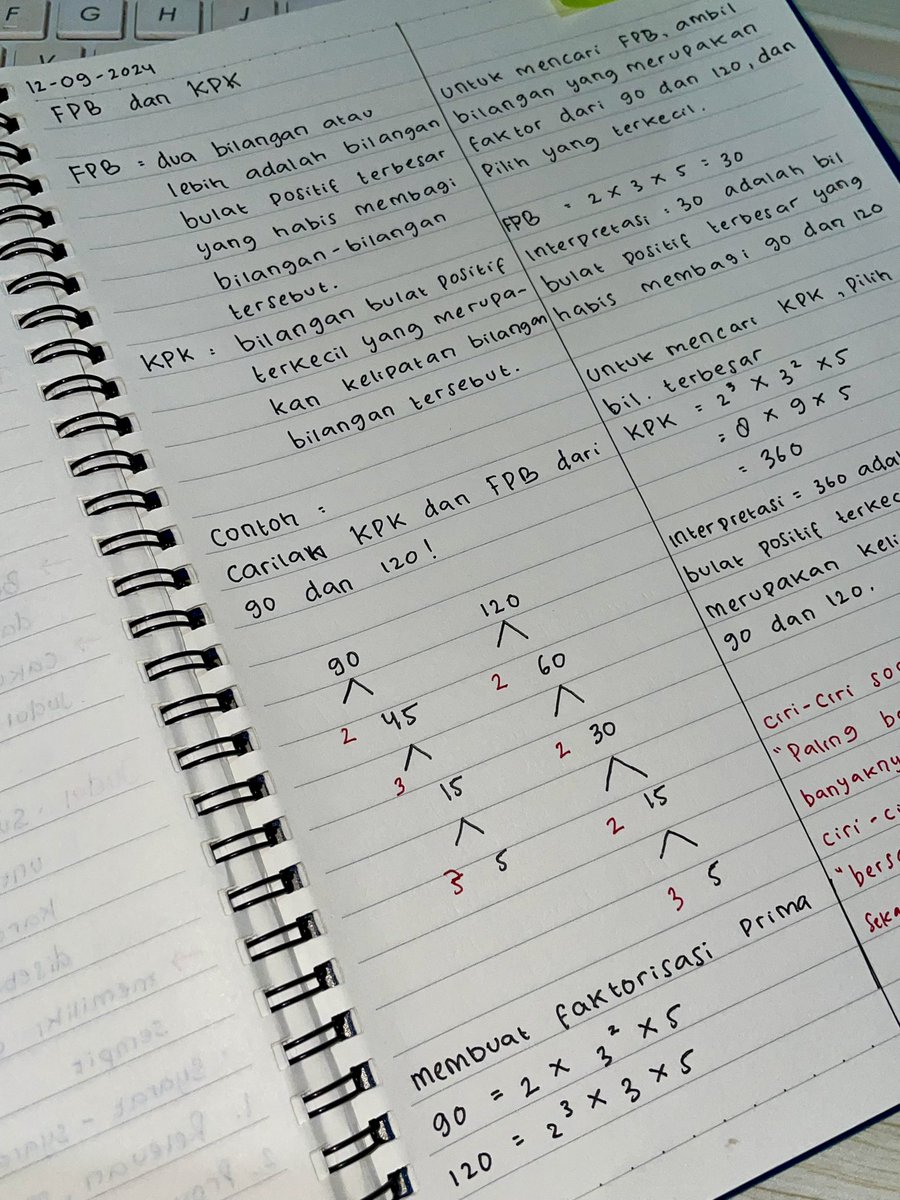 F G H J
12-09-2024
FPB dan KPK
FPB = dua bilangan atau
lebih adalah bilangan
bulat positif terbesar
yang habis membagi
bilangan-bilangan
tersebut.
KPK : bilangan bulat positif
terkecil yang merupa-
kan kelipatan bilangan
bilangan tersebut.
Contoh :
Carilah KPK dan FPB dari
90 dan 120!
90
2 45
3 15
3 5
120
2 60
2 30
2 15
3 5
membuat faktorisasi prima
90 = 2 × 3² × 5
120 = 2³ × 3 × 5
untuk mencari FPB, ambil
bilangan yang merupakan
faktor dari 90 dan 120, dan
Pilih yang terkecil.
FPB = 2 × 3 × 5 = 30
Interpretasi : 30 adalah bil
bulat positif terbesar yang
habis membagi 90 dan 120
untuk mencari KPK, pilih
bil. terbesar
KPK = 2³ × 3² × 5
= 8 × 9 × 5
= 360
Interpretasi = 360
bulat positif
merupakan
90 dan 120.
Ciri-ciri
"Paling
banyaknya
ciri-